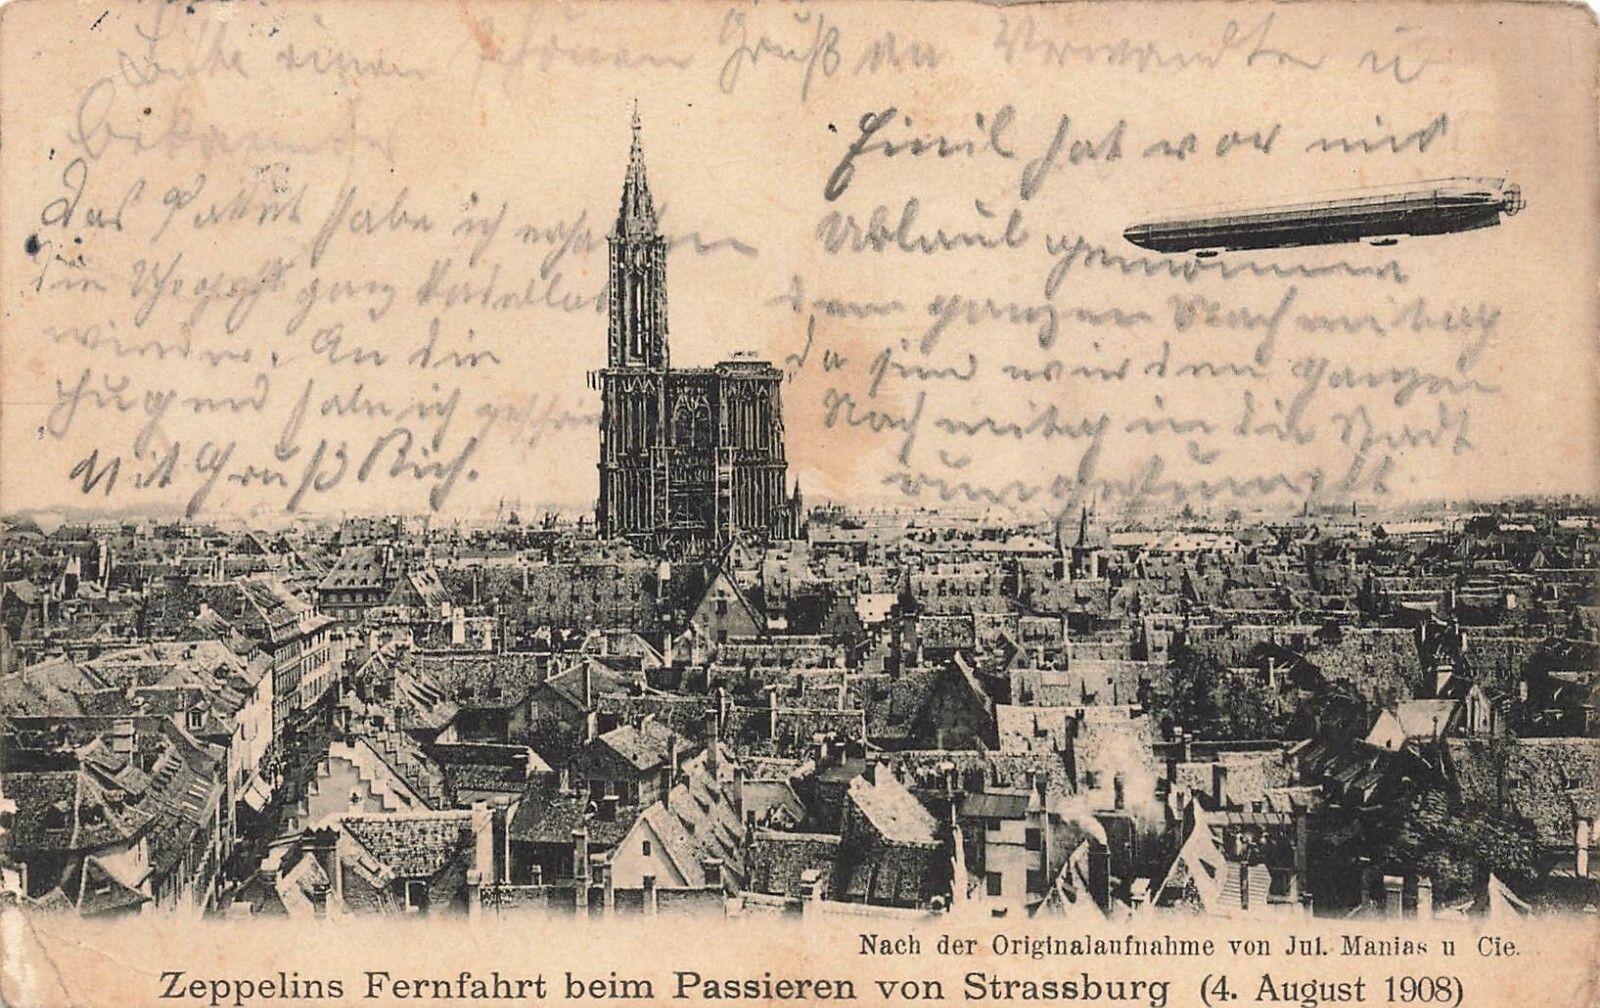 Bitte einen schönen Gruß an Verwandte u
Bekannte
Das Packet habe ich erhalten
die ganz tadellos
wieder. An die
Jugend habe ich
Mit Gruß Rich.
Emil hat vor mir
Urlaub genommen
den ganzen Nachmittag
da sind wir den ganzen
Nachmittag in die Stadt
Nach der Originalaufnahme von Jul. Manias u Cie.
Zeppelins Fernfahrt beim Passieren von Strassburg (4. August 1908)